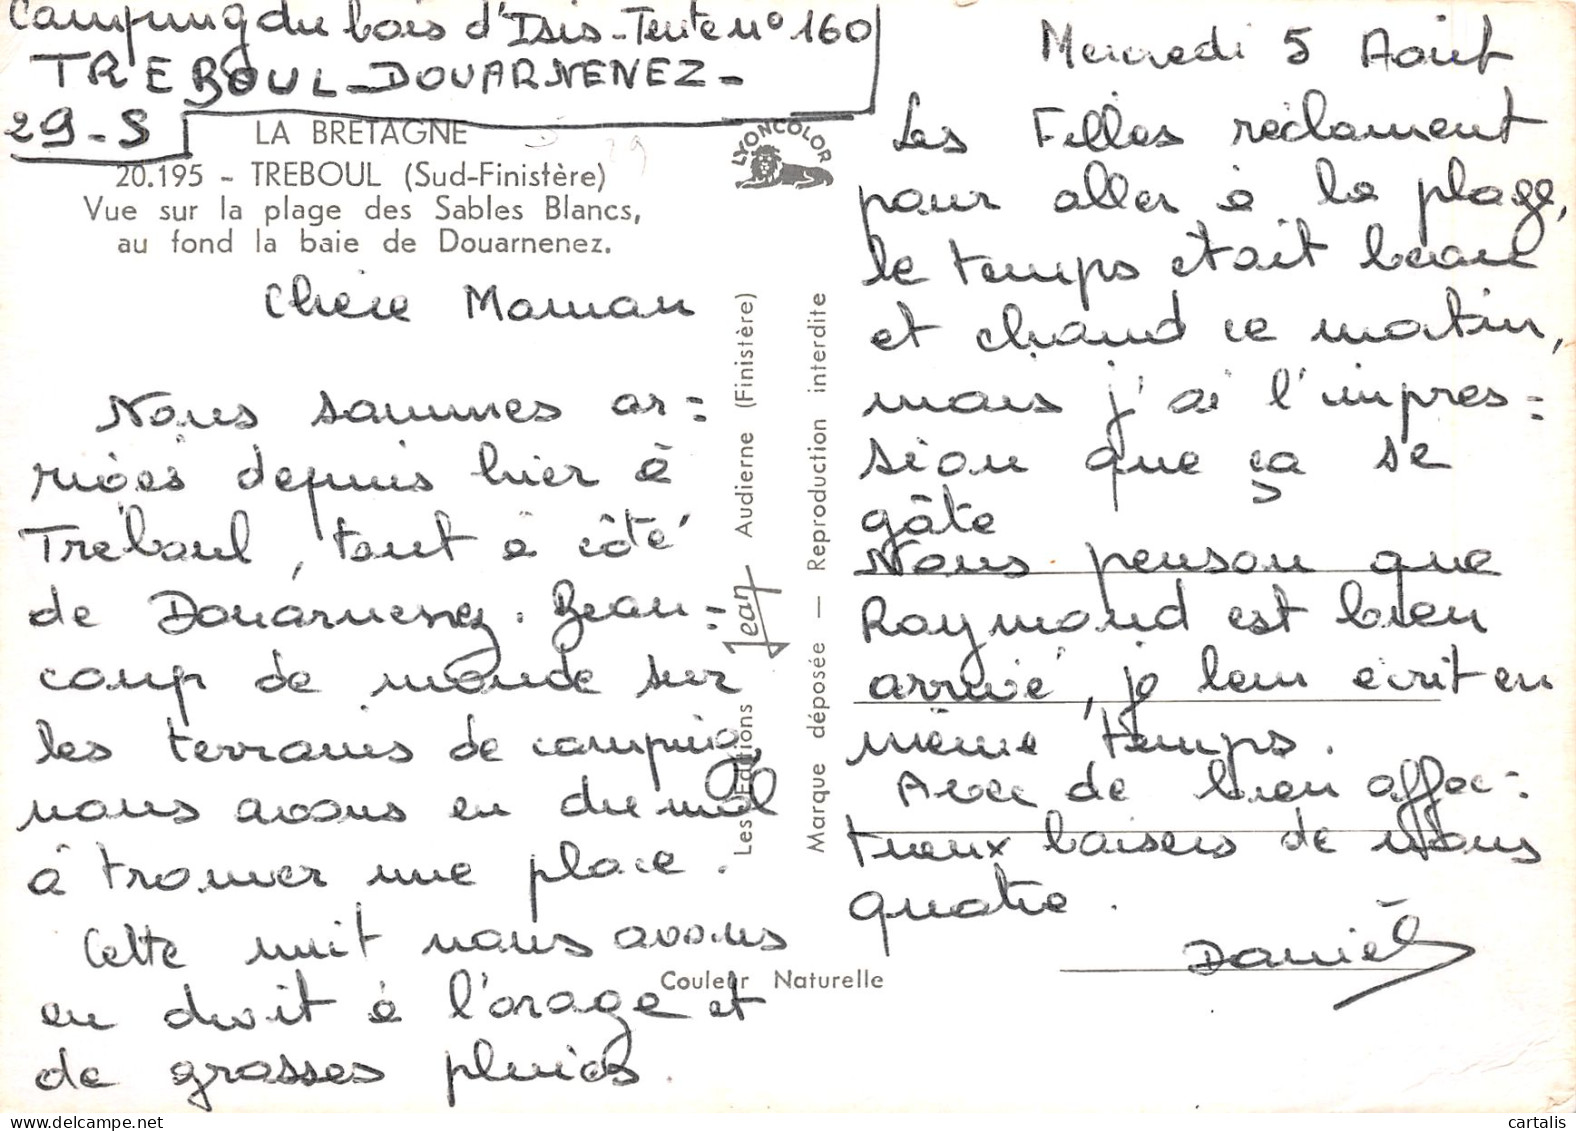 Camping du bois d'Isis - Tente n° 160
TREBOUL - DOUARNENEZ -
29 - S
LA BRETAGNE
20.195 - TREBOUL (Sud-Finistère)
Vue sur la plage des Sables Blancs,
au fond la baie de Douarnenez.
Chère Maman
Nous sommes ar=
rivés depuis hier à
Tréboul, tout à côté
de Douarnenez. Beau=
coup de monde sur
les terrains de camping,
nous avons eu du mal
à trouver une place.
Cette nuit nous avons
eu droit à l'orage et
de grosses pluies
LYONCOLOR
29
Les Editions Jean Audierne (Finistère)
Marque déposée — Reproduction interdite
Couleur Naturelle
Mercredi 5 Août
Les Filles réclament
pour aller à la plage,
le temps était beau
et chaud ce matin,
mais j'ai l'impres=
sion que ça se
gâte
Nous penson que
Raymond est bien
arrivé, je leur écrit en
même temps.
Avec de bien affec=
tueux baisers de nous
quatre.
Daniel
cartalis